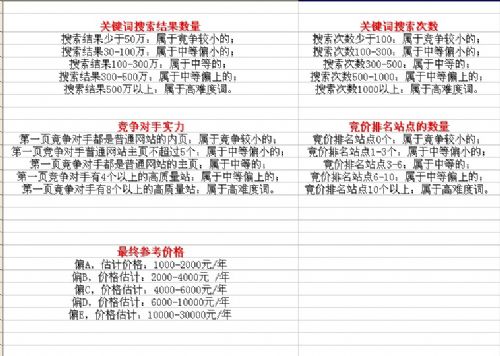 关键词搜索结果数量
搜索结果少于50万；属于竞争较小的；
搜索结果30-100万；属于中等偏小的；
搜索结果100-300万；属于中等的；
搜索结果300-500万；属于中等偏上的；
搜索结果500万以上；属于高难度词。
关键词搜索次数
搜索次数少于100；属于竞争较小的；
搜索次数100-300；属于中等偏小的；
搜索次数300-500；属于中等的；
搜索次数500-1000；属于中等偏上的；
搜索次数1000以上；属于高难度词。
竞争对手实力
第一页竞争对手都是普通网站的内页，属于竞争较小的；
第一页竞争对手普通网站主页不超过5个；属于中等偏小的；
第一页竞争对手都是普通网站的主页；属于中等的；
第一页竞争对手有4个以上的高质量站；属于中等偏上的；
第一页竞争对手有8个以上的高质量站；属于高难度词。
竞价排名站点的数量
竞价排名站点0个；属于竞争较小的；
竞价排名站点1-3个，属于中等偏小的；
竞价排名站点3-6；属于中等的；
竞价排名站点6-10；属于中等偏上的；
竞价排名站点10个以上；属于高难度词。
最终参考价格
偏A，估计价格：1000-2000元/年
偏B，价格估计：2000-4000元 /年
偏C，价格估计：4000-6000元/年
偏D，价格估计：6000-10000元/年
偏E，价格估计：10000-30000元/年